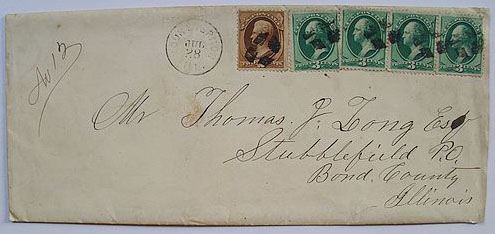 No 13
JUL
28
3 3 3 3
Mr Thomas J. Long Esq
Stubblefield P.O.
Bond. County
Illinois